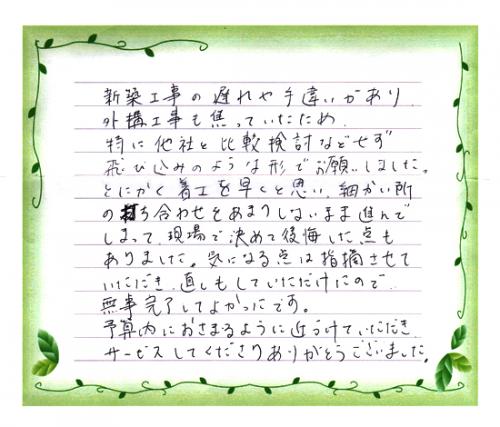 新築工事の遅れや手違いがあり
外構工事も焦っていたため
特に他社と比較検討などせず
飛び込みのような形でお願いしました。
とにかく着工を早くと思い、細かい所
の打ち合わせをあまりしないまま進んで
しまって、現場で決めて後悔した点も
ありました。気になる点は指摘させて
いただき、直しもしていただけたので
無事完了してよかったです。
予算内におさまるように近づけていただき
サービスしてくださりありがとうございました。